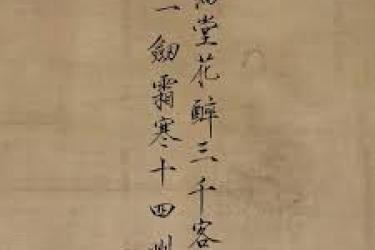 堂花醉三千客
一劔霜寒十四州